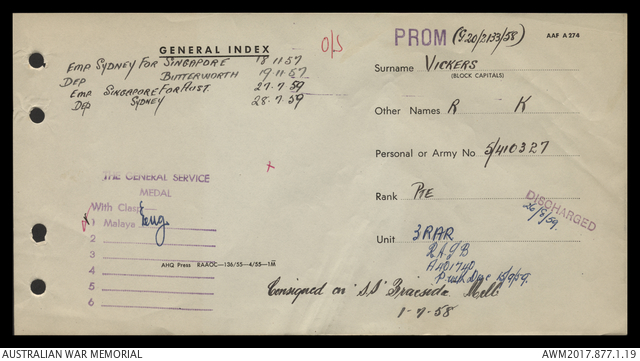 GENERAL INDEX
O/S
PROM (G20/2133/58)
AAF A 274
Emp SYDNEY FOR SINGAPORE 18-11-57
Dep BUTTERWORTH 19-11-57
Emp SINGAPORE FOR AUST. 27-7-59
Dep SYDNEY 28-7-59
Surname VICKERS
(BLOCK CAPITALS)
Other Names R K
Personal or Army No 5/410327
Rank PTE
DISCHARGED
26/8/59.
Unit 3RAR
THE GENERAL SERVICE
MEDAL
With Clasp
1 Malaya
2
3
4
5
6
AHQ Press RAAOC—136/55—4/55—1M
Consigned on "S.S" Braeside Melb
1-7-58
AUSTRALIAN WAR MEMORIAL
AWM2017.877.1.19